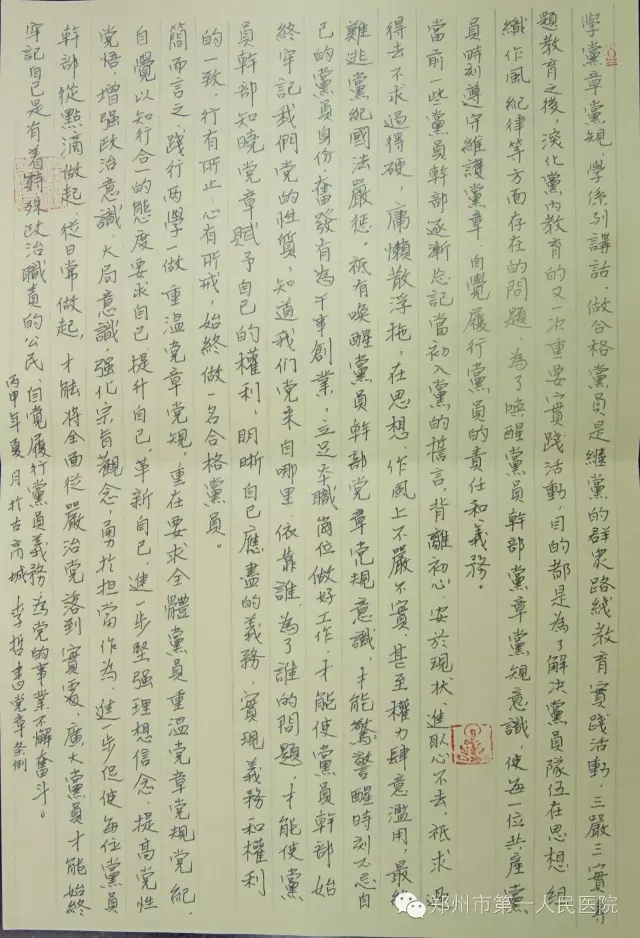 學黨章黨規，學系列講話，做合格黨員是繼黨的群眾路綫教育實踐活動，三嚴三實專
題教育之後，深化黨內教育的又一次重要實踐活動，目的都是為了解決黨員隊伍在思想組
織作風紀律等方面存在的問題，為了喚醒黨員幹部黨章黨規意識，使每一位共產黨
員時刻遵守維護黨章，自覺履行黨員的責任和義務。
當前一些黨員幹部逐漸忘記當初入黨的誓言，背離初心，安於現狀，進取心不去，祇求過
得去不求過得硬，庸懶散浮拖，在思想作風上不嚴不實，甚至權力肆意濫用，最終
難逃黨紀國法嚴惩。祇有喚醒黨員幹部党章党規意識，才能驚警醒時刻不忘自
己的黨員身份，奮發有為干事創業，立足本職崗位做好工作，才能使黨員幹部始
終牢記我們党的性質，知道我们党来自哪里，依靠誰，為了誰的問題，才能使黨
員幹部知曉党章賦予自己的權利，明晰自己應盡的義務，實現義務和權利
的一致，行有所止，心有所戒，始終做一名合格黨員。
簡而言之，践行两學一做重温党章党規，重在要求全體黨員重温党章党規党紀，
自覺以知行合一的態度要求自己提升自己革新自己，進一步堅强理想信念，提高党性
党悟，增强政治意識，大局意識强化宗旨觀念，勇於担當作為，進一步促使每位黨員
幹部從點滴做起，從日常做起，才能將全面從嚴治党落到實處，廣大黨員才能始終
牢記自己是有着特殊政治職責的公民，自覺履行黨員義務，為党的事業不懈奮斗。
丙申年夏月於古商城 李哲書党章条例
郑州市第一人民医院